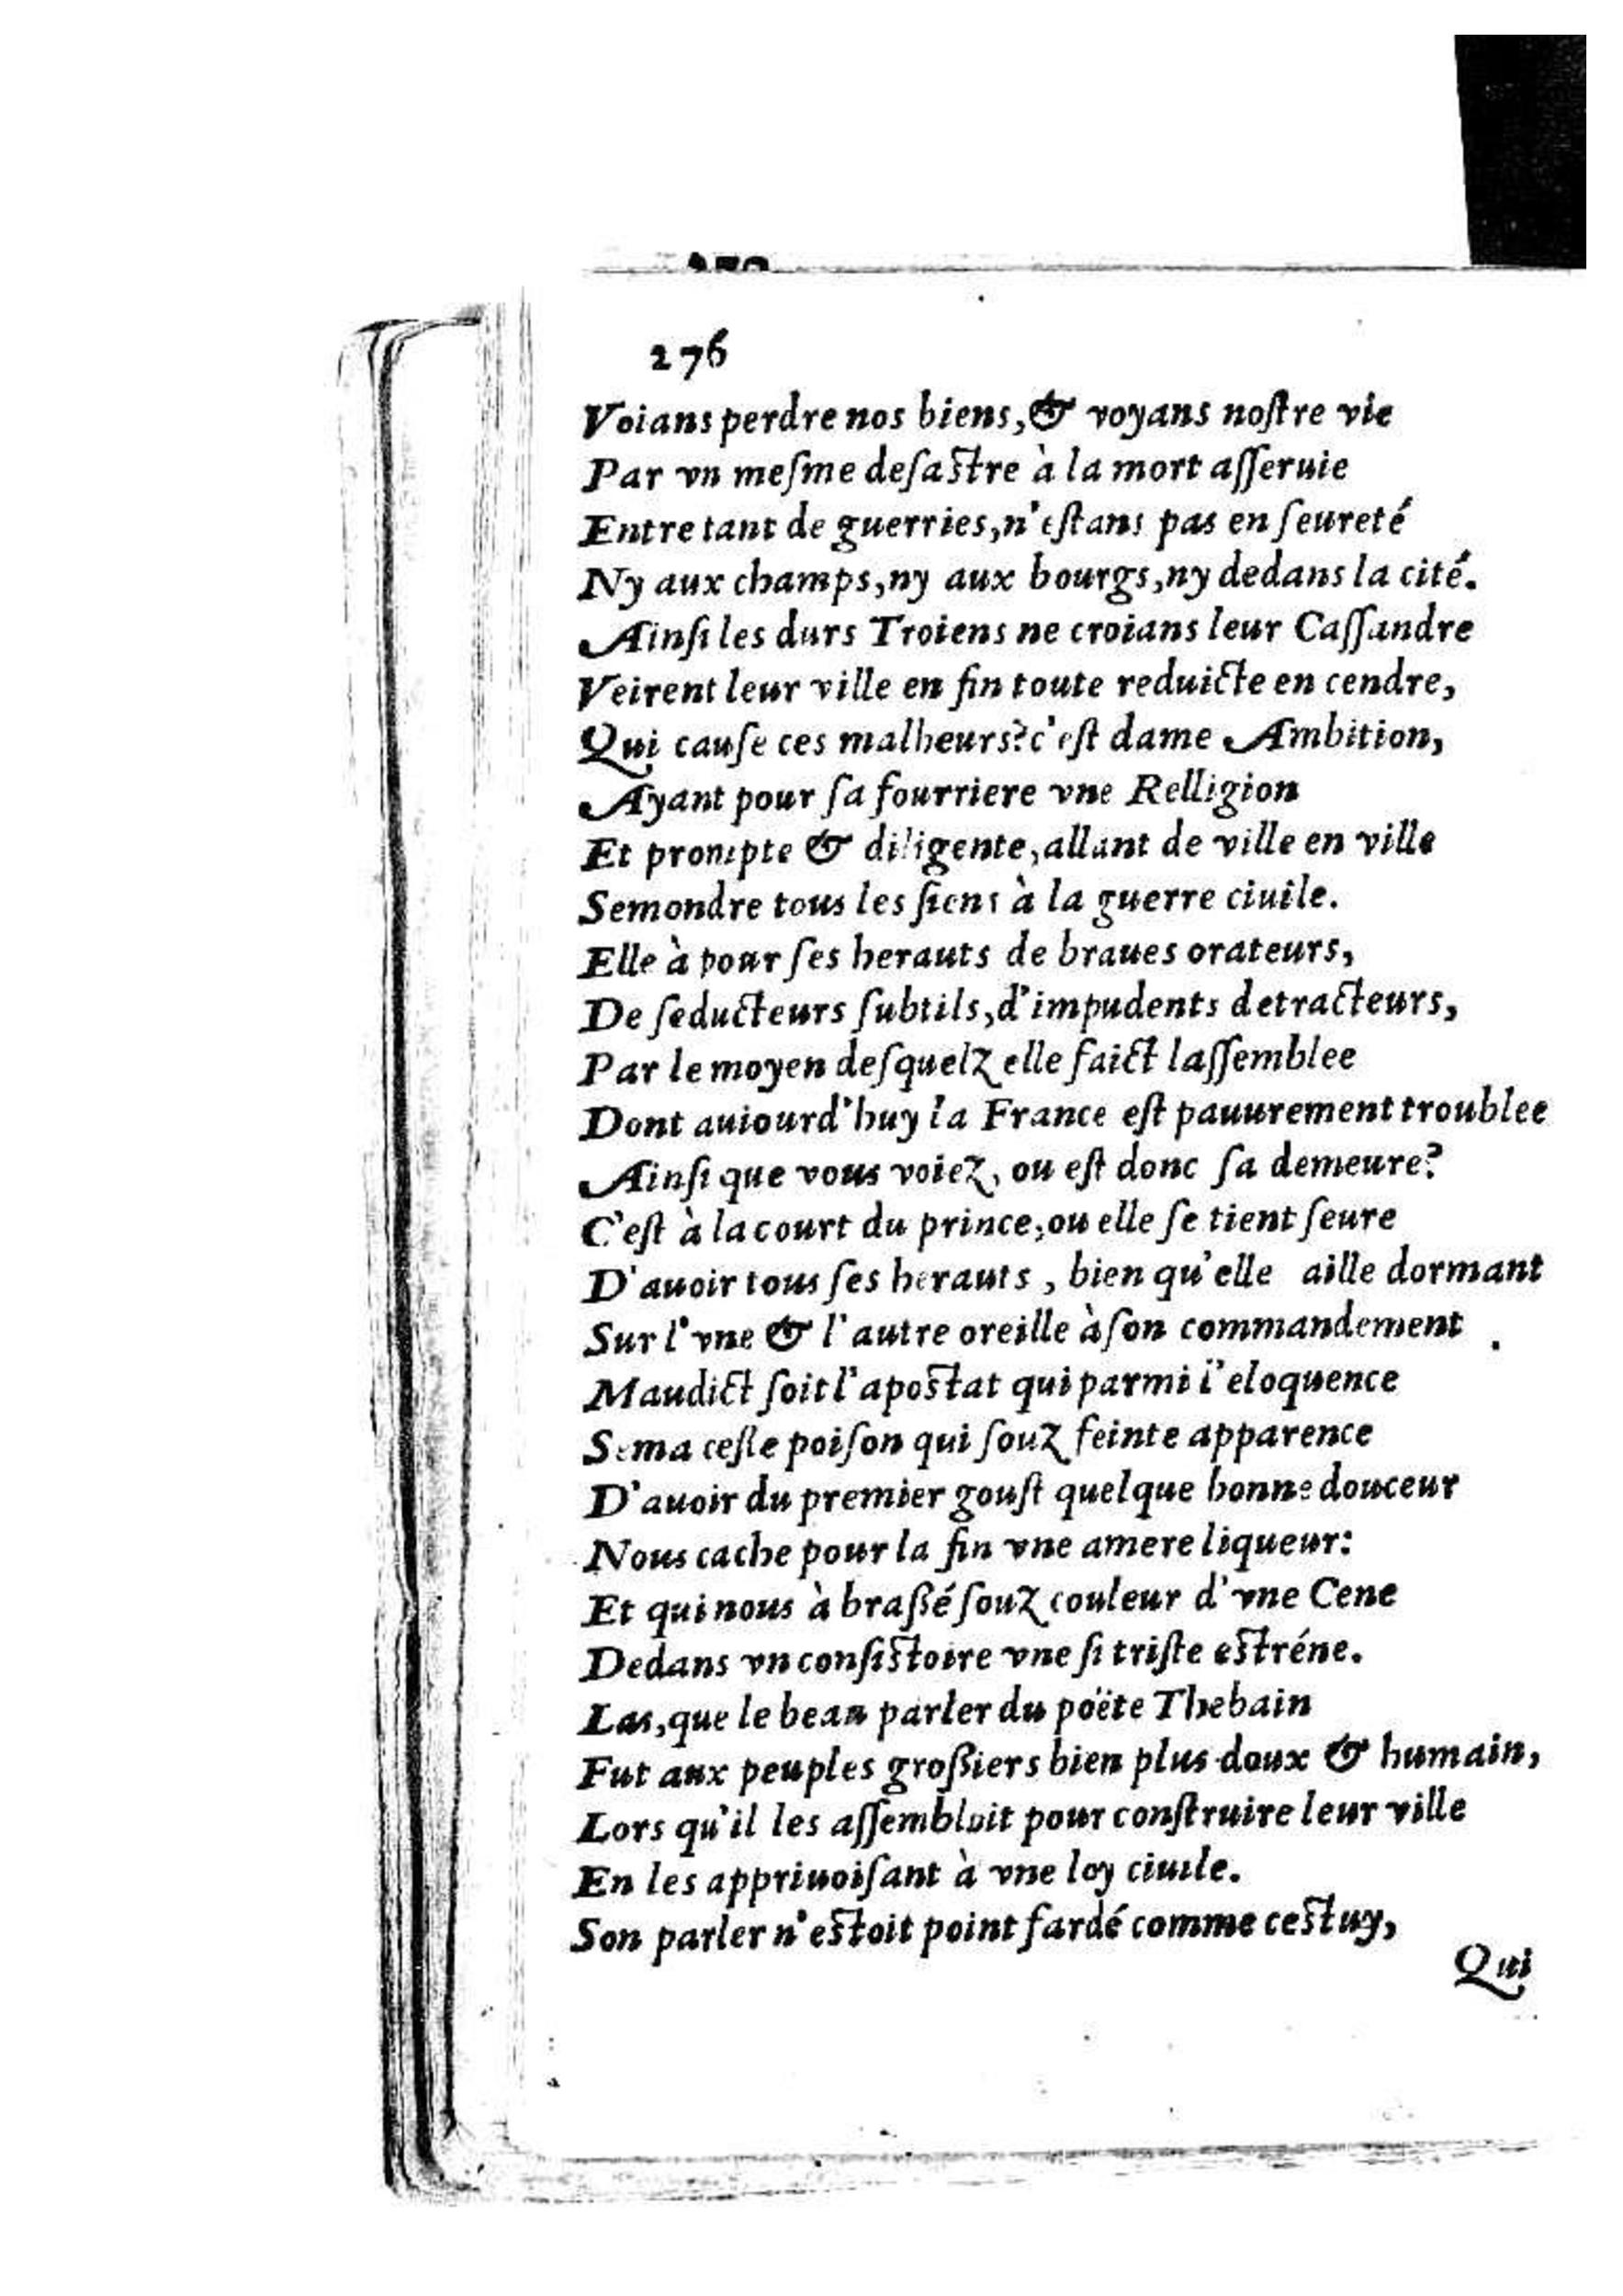 276
Voians perdre nos biens, & voyans noſtre vie
Par vn meſme deſaſtre à la mort aſſeruie
Entre tant de guerries, n'eſtans pas en ſeureté
Ny aux champs, ny aux bourgs, ny dedans la cité.
Ainſi les durs Troiens ne croians leur Caſſandre
Veirent leur ville en fin toute reduicte en cendre,
Qui cauſe ces malheurs? c'eſt dame Ambition,
Ayant pour ſa fourriere vne Relligion
Et prompte & diligente, allant de ville en ville
Semondre tous les ſiens à la guerre ciuile.
Elle à pour ſes herauts de braues orateurs,
De ſeducteurs ſubtils, d'impudents detracteurs,
Par le moyen deſquelz elle faict laſſemblee
Dont auiourd'huy la France eſt pauurement troublee
Ainſi que vous voiez, ou eſt donc ſa demeure?
C'eſt à la court du prince, ou elle ſe tient ſeure
D'auoir tous ſes herauts, bien qu'elle aille dormant
Sur l'vne & l'autre oreille à ſon commandement.
Maudict ſoit l'apoſtat qui parmi l'eloquence
Sema ceſte poiſon qui ſouz feinte apparence
D'auoir du premier gouſt quelque bonne douceur
Nous cache pour la fin vne amere liqueur:
Et qui nous à braſſé ſouz couleur d'vne Cene
Dedans vn conſiſtoire vne ſi triſte eſtréne.
Las, que le beau parler du poëte Thebain
Fut aux peuples groſſiers bien plus doux & humain,
Lors qu'il les aſſembloit pour conſtruire leur ville
En les appriuoiſant à vne loy ciuile.
Son parler n'eſtoit point fardé comme ceſtuy,
Qui